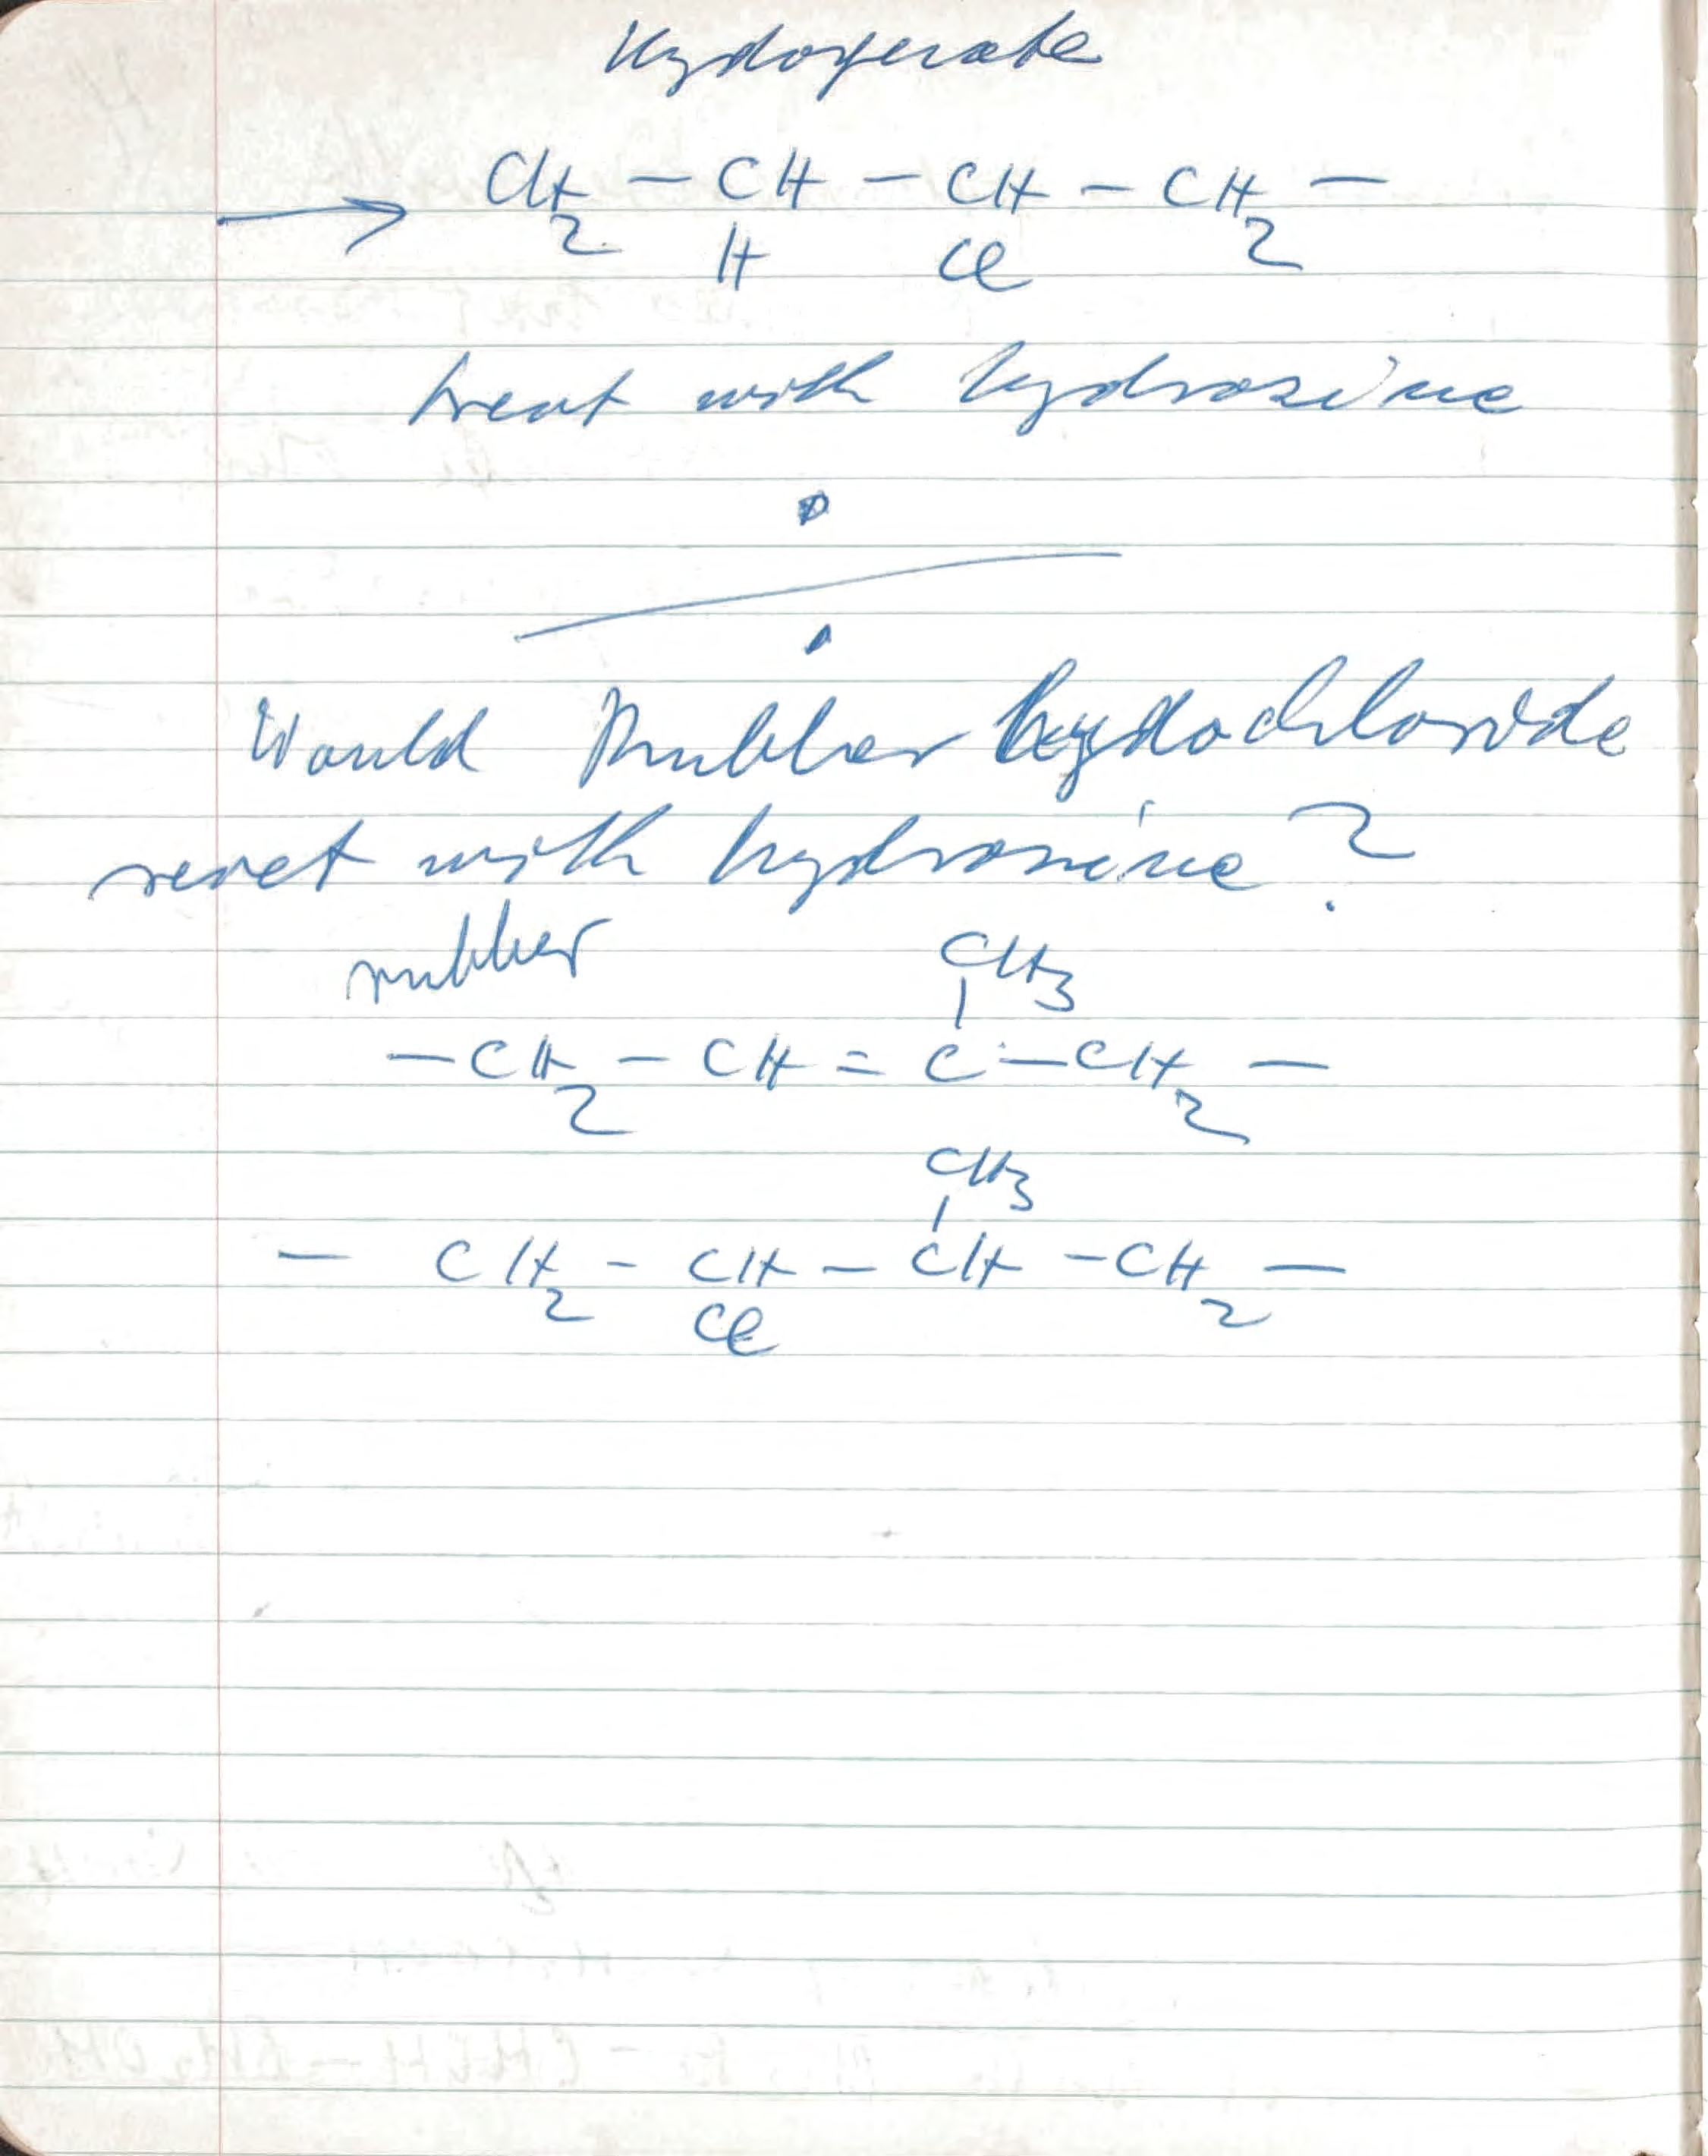 Hydogenate
→ CH2 — CH — CH — CH2 —
H Cl
treat with hydrazine
Would Rubber hydochloride
react with hydrazine?
rubber
CH3
— CH2 — CH = C — CH2 —
CH3
— CH2 - CH — CH - CH2 —
Cl